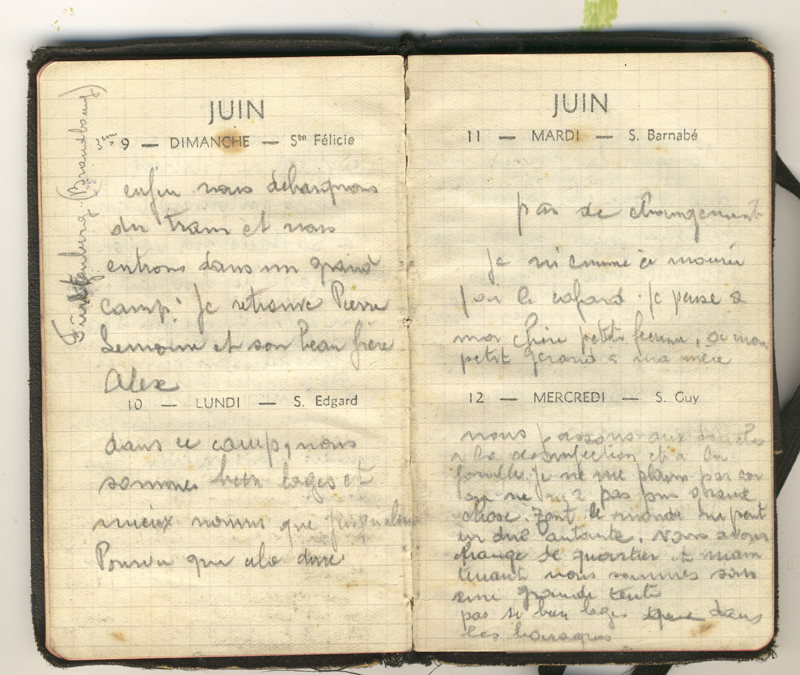 JUIN
9 — DIMANCHE — Ste Félicie
enfin nous debarquons
du train et nous
entrons dans un grand
camp. Je retrouve Pierre
Lemoine et son beau frère
Alex
10 — LUNDI — S. Edgard
dans ce camp, nous
sommes bien loges et
mieux nourris que jusqu'alors
Pourvu que cela dure.
JUIN
11 — MARDI — S. Barnabé
pas de changement
je m'ennuie à mourir
j'ai le cafard. je pense a
ma chère petite femme, a mon
petit Gérard a ma mère
12 — MERCREDI — S. Guy
nous passons aux douches
a la desinfection et a la
fouille. je ne me plains pas car
on ne m'a pas pris grand
chose. tout le monde ne peut
en dire autant. Nous avons
change de quartier et main
tenant nous sommes sous
une grande tente
pas si bien loges que dans
les baraques